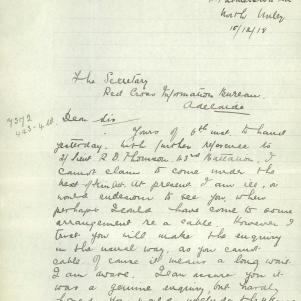 North Unley
15/12/18
The Secretary
Red Cross Information Bureau
Adelaide
Dear Sir
Yours of 6th inst. to hand
yesterday. With further reference to
2/Lieut R. D. Thomson 43rd Battalion, I
cannot claim to come under the
next of kin Act. At present I am ill, or
would endeavour to see you, when
perhaps I could have come to some
arrangement re a cable. However I
trust you will make the enquiry
in the usual way, as you cannot
cable. Of course it means a long wait
I am aware. I can assure you it
was a genuine enquiry, but